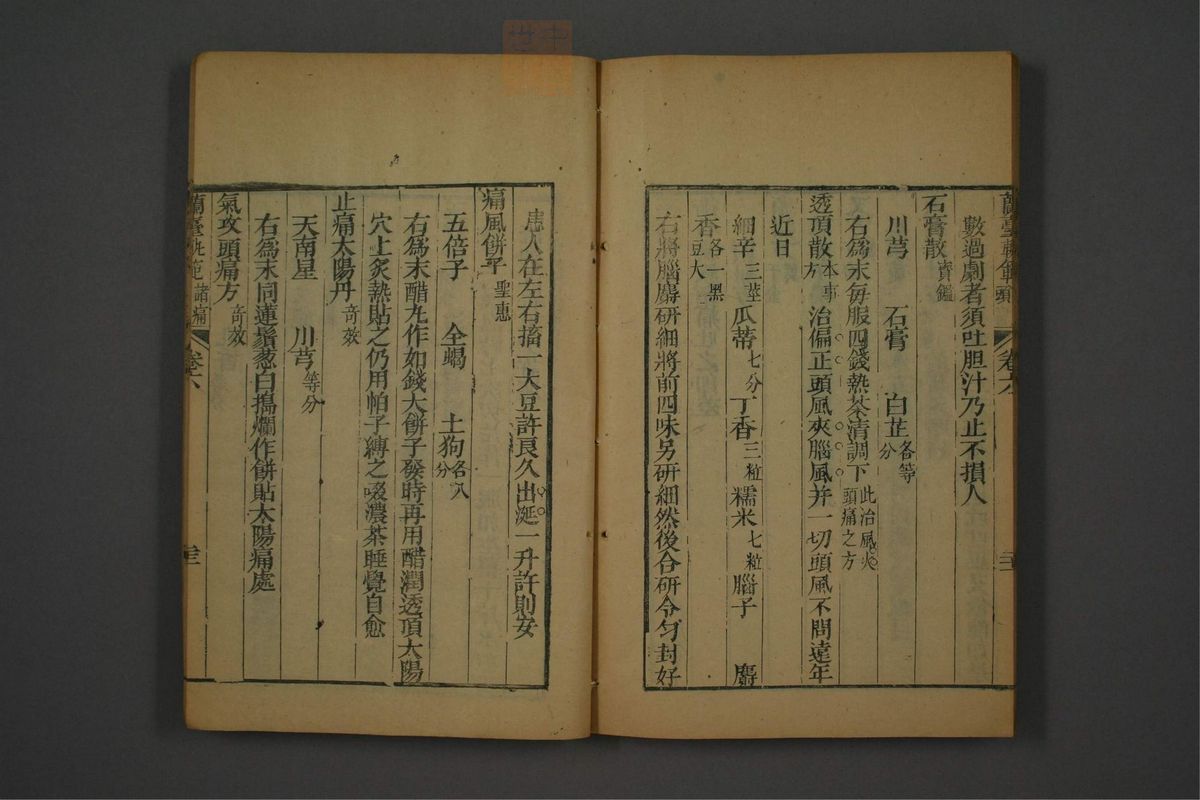 數過劇者須吐胆汁乃止不損人
石膏散寶鑑
川芎 石膏 白芷各等分
右為末每服四錢熱茶清調下此治風火頭痛之方
透頂散本事方治偏正頭風夾腦風并一切頭風不問遠年
近日
細辛三莖瓜蒂七分丁香三粒糯米七粒腦子 麝
香各一黑豆大
右將腦麝研細將前四味另研細然後合研令匀封好
患人在左右搐一大豆許良久出涎一升許則安
痛風餅子聖惠
五倍子 全蝎 土狗各八分
右為末醋丸作如錢大餅子發時再用醋潤透頂太陽
穴上炙熱貼之仍用帕子縛之啜濃茶睡覺自愈
止痛太陽丹奇效
天南星 川芎等分
右為末同蓮鬚葱白搗爛作餅貼太陽痛處
氣攻頭痛方奇效
蘭臺軌範諸痛 卷六